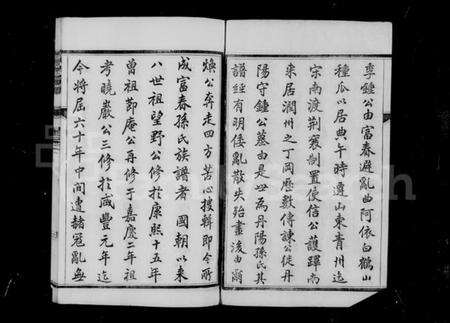 季鍾公由富春避亂曲阿依白鶴山
種瓜以居典午時遷山東青州迄
宋南渡荆襄制置使信公護蹕南
來居潤州之丁岡歷數傳諫公從丹
陽守鍾公墓由是世為丹陽孫氏其
譜經有明倭亂散失殆盡浚由
煥公奔走四方苦心搜輯即今所
成富春孫氏族譜者 國朝以來
八世祖望野公修於康熙十五年
曾祖勤庵公再修于嘉慶二年祖
考曉巖公三修於咸豐元年迄
今將屆六十年中間遭赭冦亂無